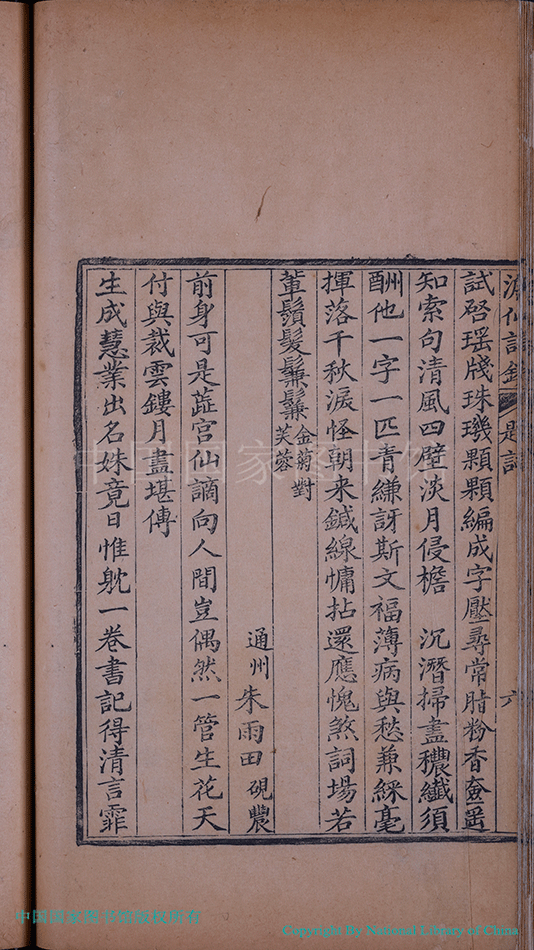 試啓瑶牋珠璣顆顆編成字壓尋常脂粉香奩
知索句清風四壁淡月侵檐　沉潛掃盡穠纖須
酬他一字一匹青縑訝斯文福薄病與愁兼綵毫
揮落千秋淚怪朝来鍼線慵拈還應愧煞詞場若
輩鬚髮鬑鬑金菊對芙蓉
通州朱雨田硯農
前身可是蕋宫仙謫向人間豈偶然一管生花天
付與裁雲鏤月盡堪傳
生成慧業出名姝竟日惟躭一卷書記得清言霏
中国国家图书馆
中国国家图书馆版权所有
Copyright By National Library of China